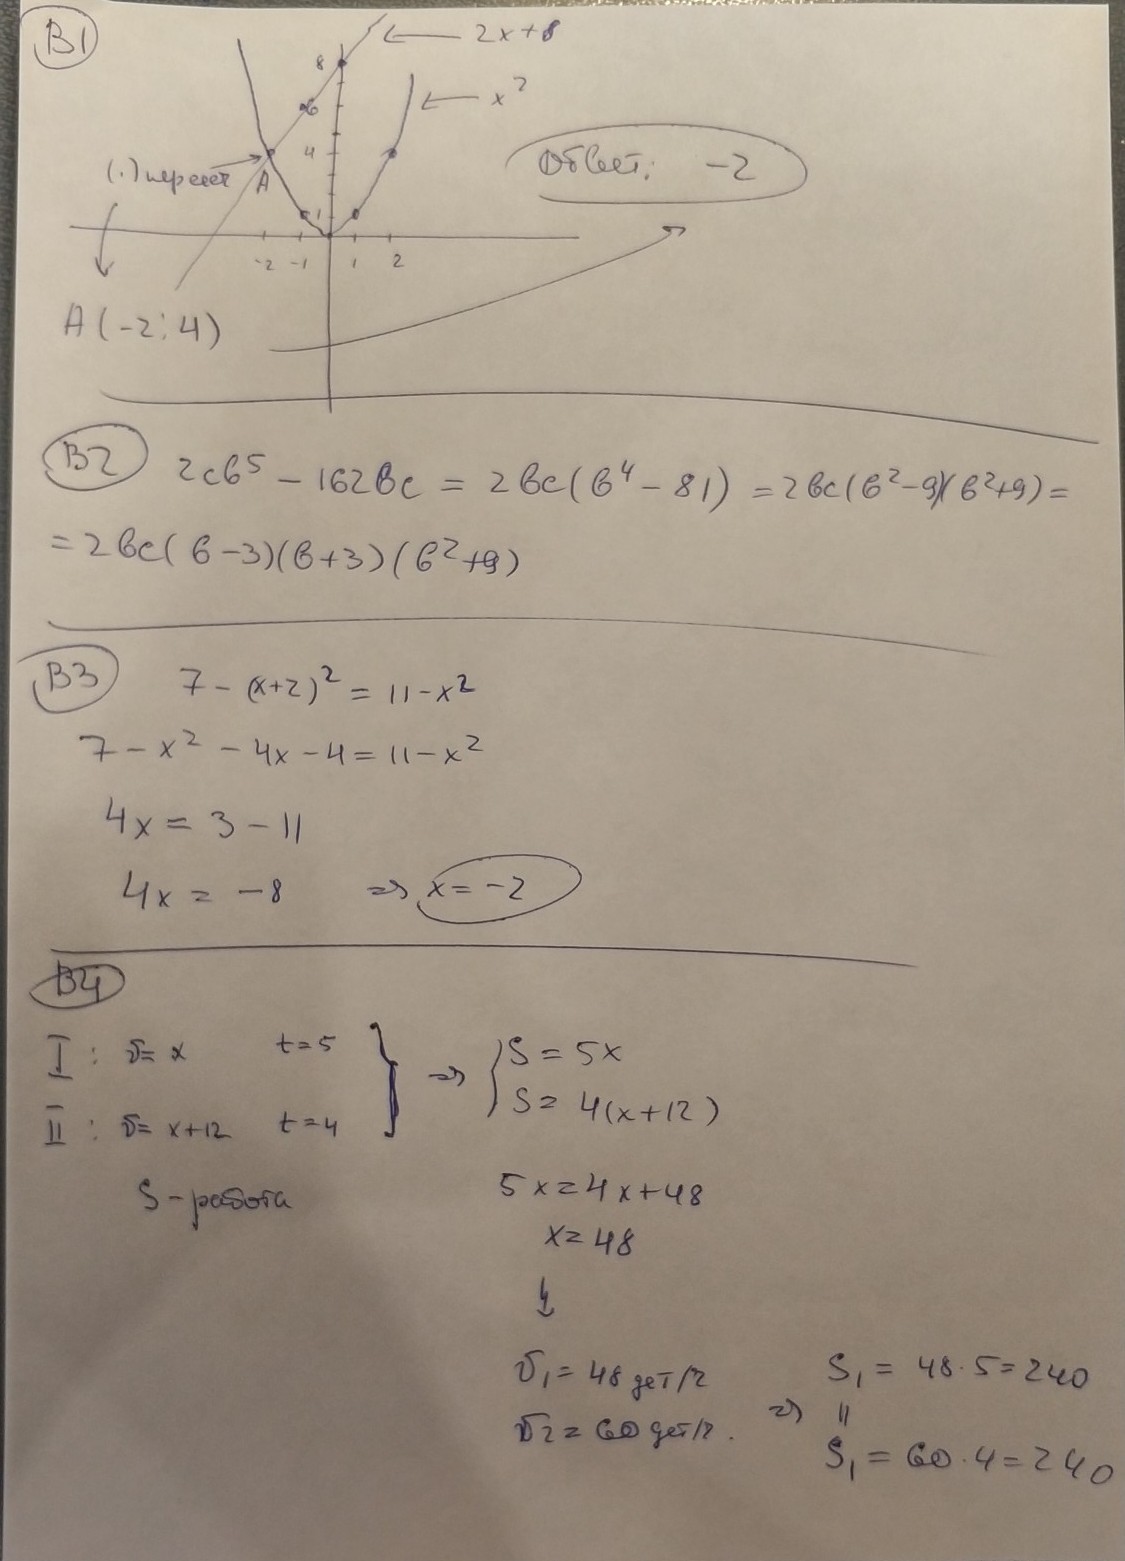 В1
2x+8
x²
8
6
4
1
(·) пересеч
А
Ответ: -2
-2 -1 1 2
А(-2; 4)
В2 2cb⁵ - 162bc = 2bc(b⁴ - 81) = 2bc(b²-9)(b²+9) =
= 2bc(b-3)(b+3)(b²+9)
В3 7 - (x+2)² = 11 - x²
7 - x² - 4x - 4 = 11 - x²
4x = 3 - 11
4x = -8 => x = -2
В4
I : v = x t = 5 } => { S = 5x
II : v = x+12 t = 4 S = 4(x+12)
S - работа
5x = 4x + 48
x = 48
↓
v₁ = 48 дет/ч
v₂ = 60 дет/ч. =>
S₁ = 48·5 = 240
=
S₁ = 60·4 = 240